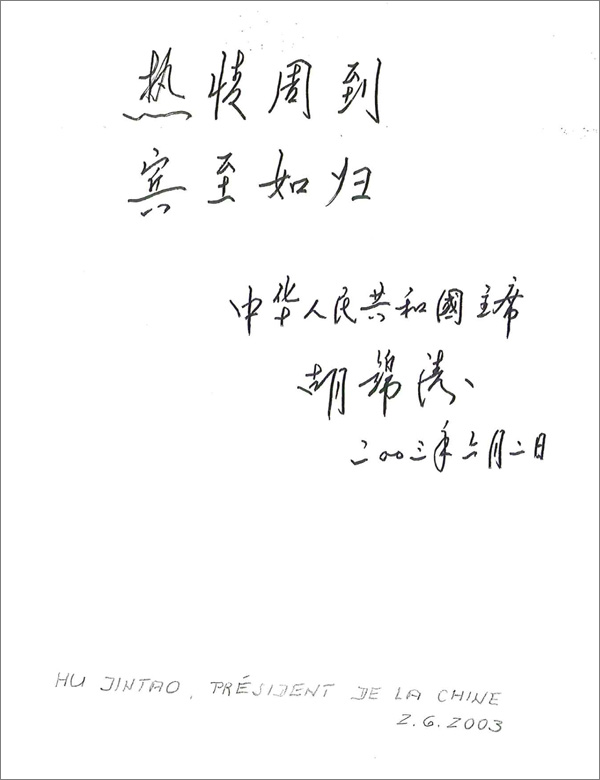 热情周到
宾至如归
中华人民共和國主席
胡锦涛
二〇〇三年六月二日
HU JINTAO, PRÉSIDENT DE LA CHINE
2.6.2003